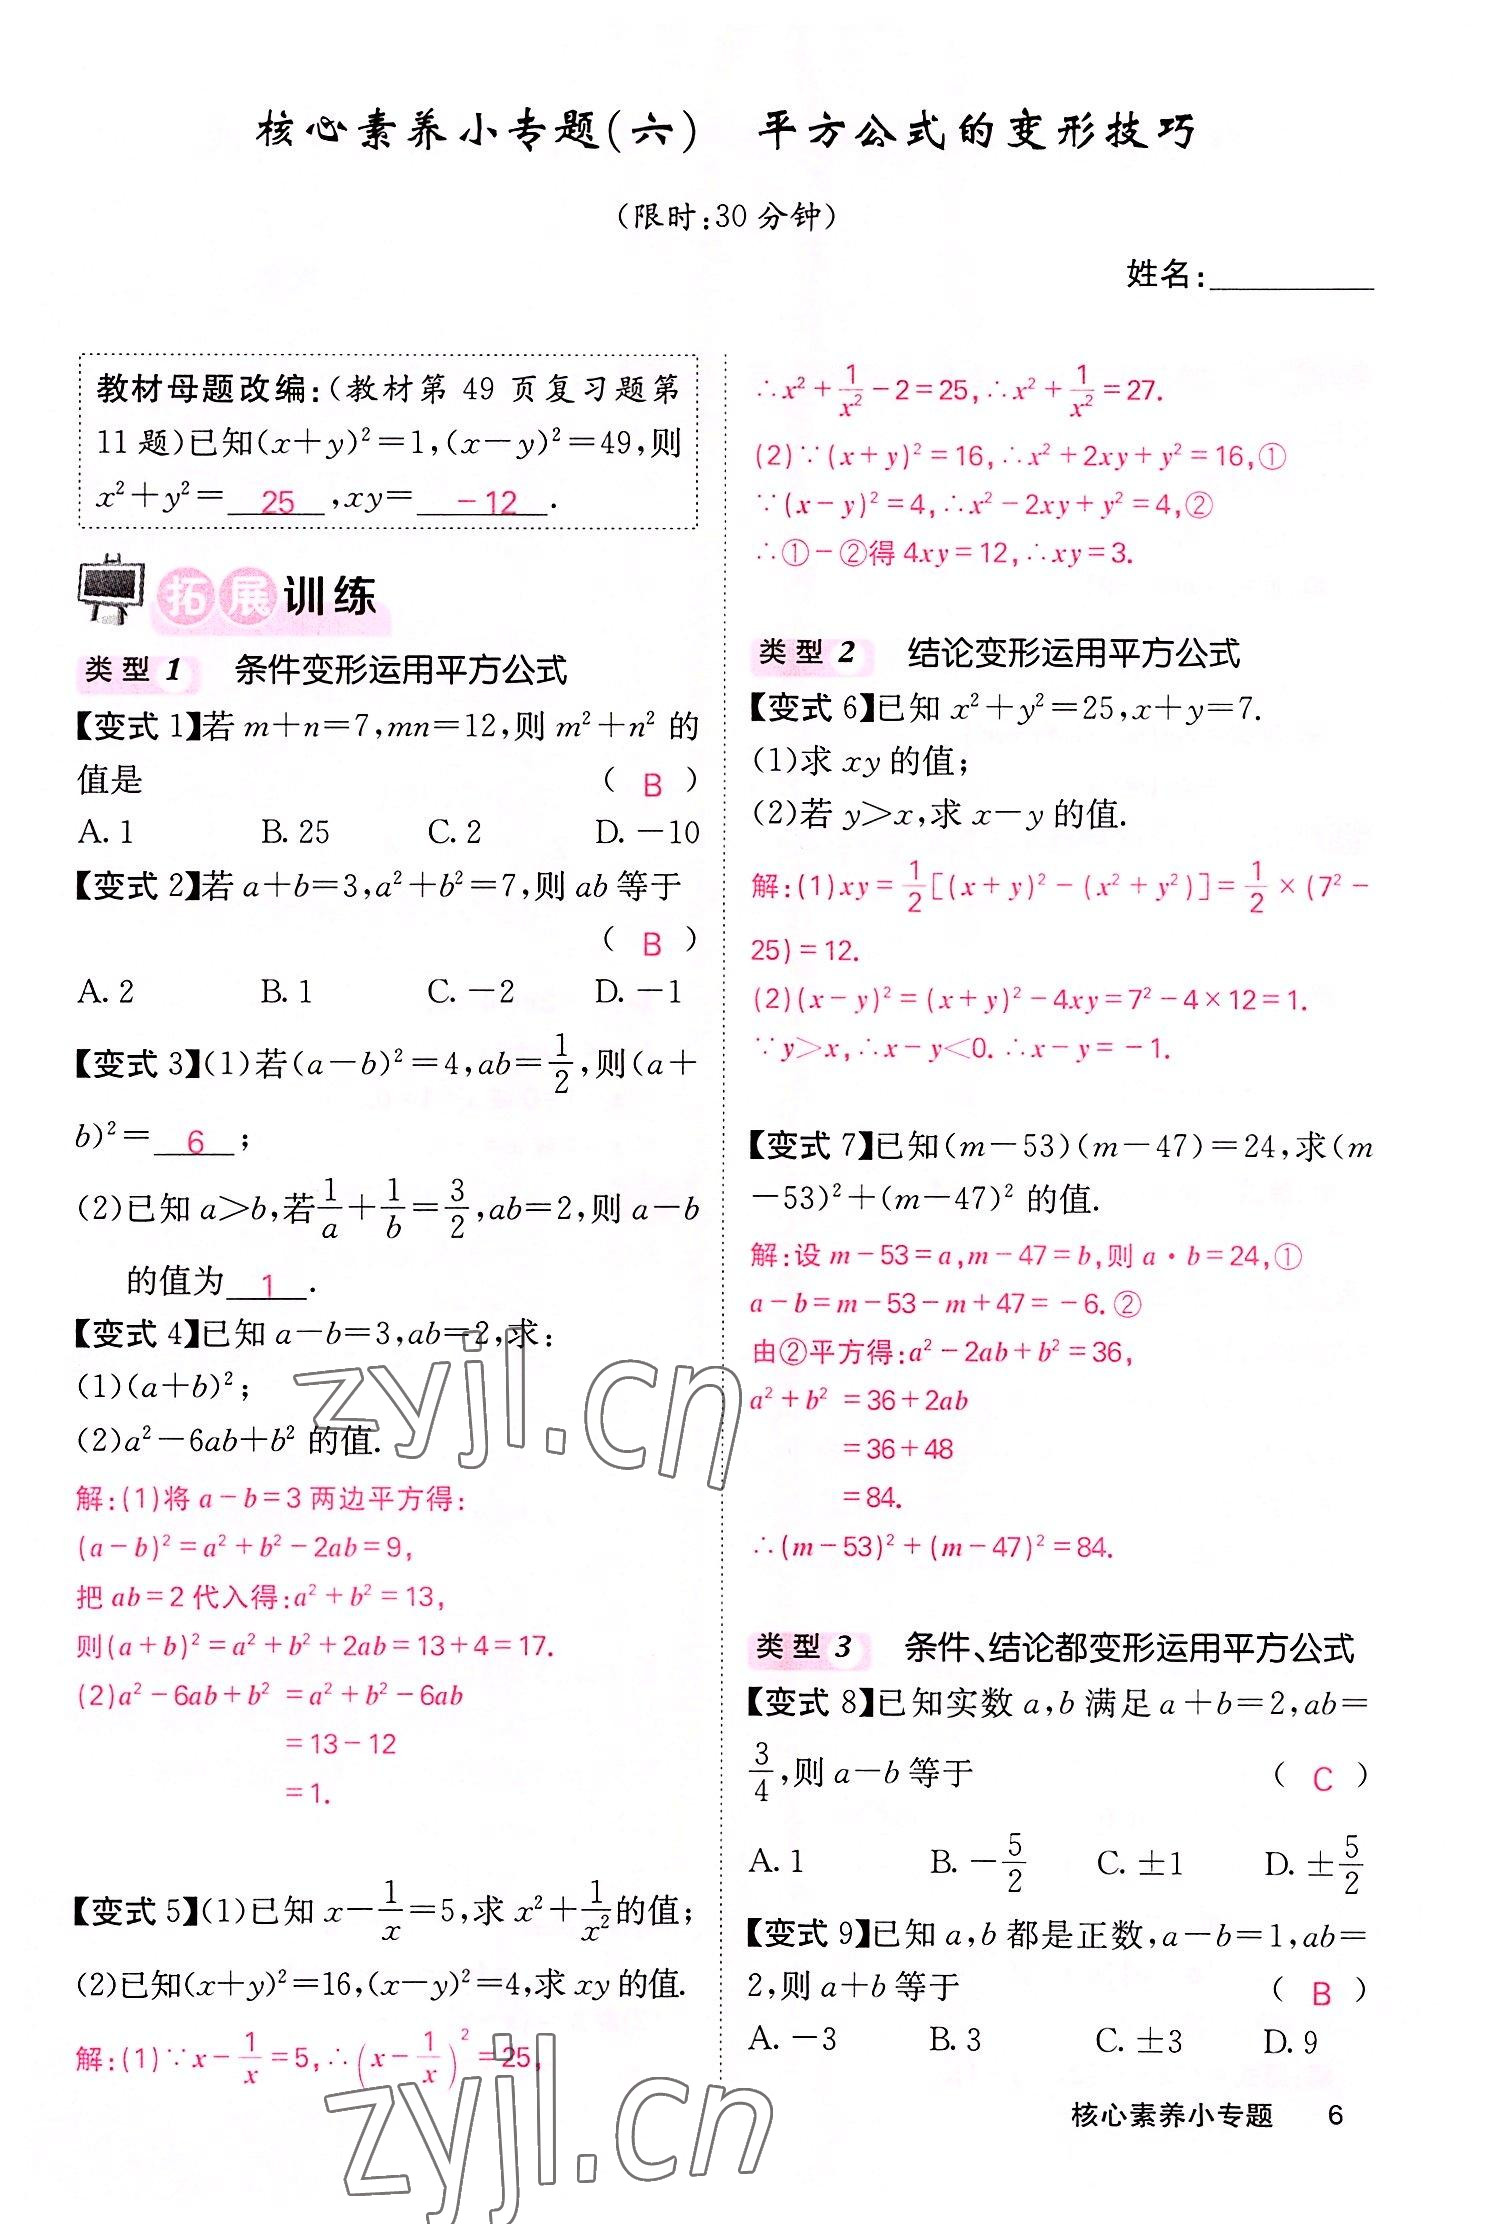 核心素养小专题(六) 平方公式的变形技巧
(限时:30分钟)
姓名:__________
教材母题改编:(教材第 49 页复习题第
11题)已知(x+y)²=1,(x-y)²=49,则
x²+y²= 25 ,xy= -12 .
拓展训练
类型1 条件变形运用平方公式
【变式 1】若 m+n=7,mn=12,则 m²+n² 的
值是 ( B )
A. 1 B. 25 C. 2 D. -10
【变式 2】若 a+b=3,a²+b²=7,则 ab 等于
( B )
A. 2 B. 1 C. -2 D. -1
【变式 3】(1)若(a-b)²=4,ab=1/2,则(a+
b)²= 6 ;
(2)已知 a>b,若1/a+1/b=3/2,ab=2,则 a-b
的值为 1 .
【变式 4】已知 a-b=3,ab=2,求:
(1)(a+b)²;
(2)a²-6ab+b² 的值.
解:(1)将 a-b=3 两边平方得:
(a-b)²=a²+b²-2ab=9,
把 ab=2 代入得:a²+b²=13,
则(a+b)²=a²+b²+2ab=13+4=17.
(2)a²-6ab+b² =a²+b²-6ab
=13-12
=1.
【变式 5】(1)已知 x-1/x=5,求 x²+1/x²的值;
(2)已知(x+y)²=16,(x-y)²=4,求 xy 的值.
解:(1)∵x-1/x=5,∴(x-1/x)²=25,
∴x²+1/x²-2=25,∴x²+1/x²=27.
(2)∵(x+y)²=16,∴x²+2xy+y²=16,①
∵(x-y)²=4,∴x²-2xy+y²=4,②
∴①-②得 4xy=12,∴xy=3.
类型2 结论变形运用平方公式
【变式 6】已知 x²+y²=25,x+y=7.
(1)求 xy 的值;
(2)若 y>x,求 x-y 的值.
解:(1)xy=1/2[(x+y)²-(x²+y²)]=1/2×(7²-
25)=12.
(2)(x-y)²=(x+y)²-4xy=7²-4×12=1.
∵y>x,∴x-y<0.∴x-y=-1.
【变式 7】已知(m-53)(m-47)=24,求(m
-53)²+(m-47)² 的值.
解:设 m-53=a,m-47=b,则 a·b=24,①
a-b=m-53-m+47=-6.②
由②平方得:a²-2ab+b²=36,
a²+b² =36+2ab
=36+48
=84.
∴(m-53)²+(m-47)²=84.
类型3 条件、结论都变形运用平方公式
【变式 8】已知实数 a,b 满足 a+b=2,ab=
3/4,则 a-b 等于 ( C )
A. 1 B. -5/2 C. ±1 D. ±5/2
【变式 9】已知 a,b 都是正数,a-b=1,ab=
2,则 a+b 等于 ( B )
A. -3 B. 3 C. ±3 D. 9
核心素养小专题 6
zyjl.cn
zyjl.cn